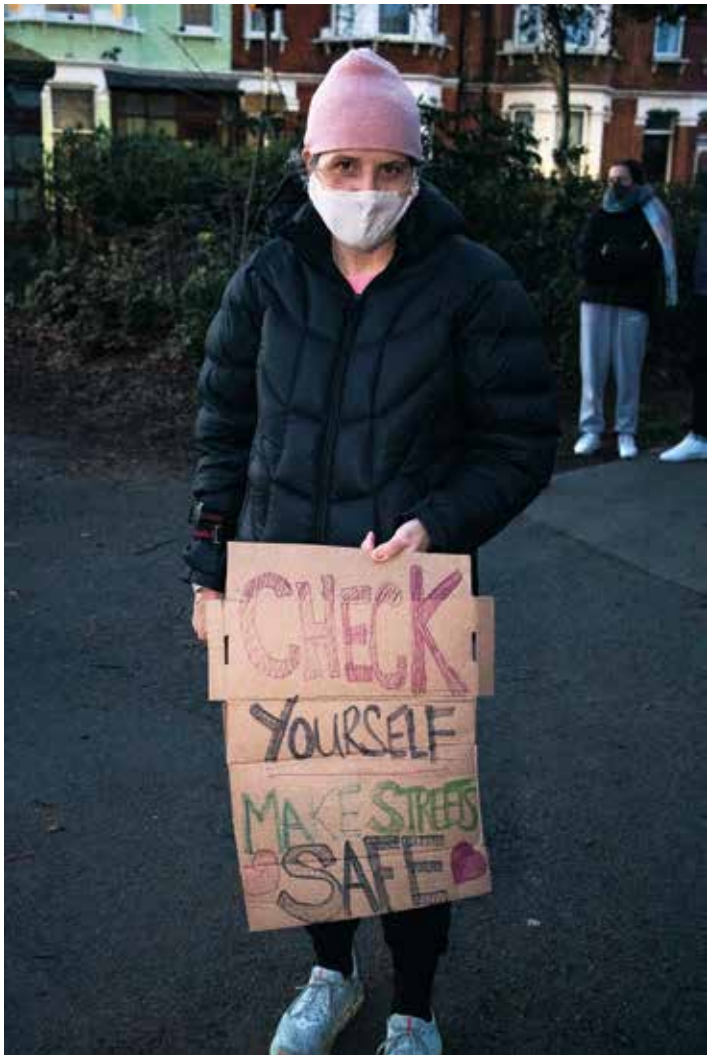 CHECK
YOURSELF
MAKE STREETS
SAFE